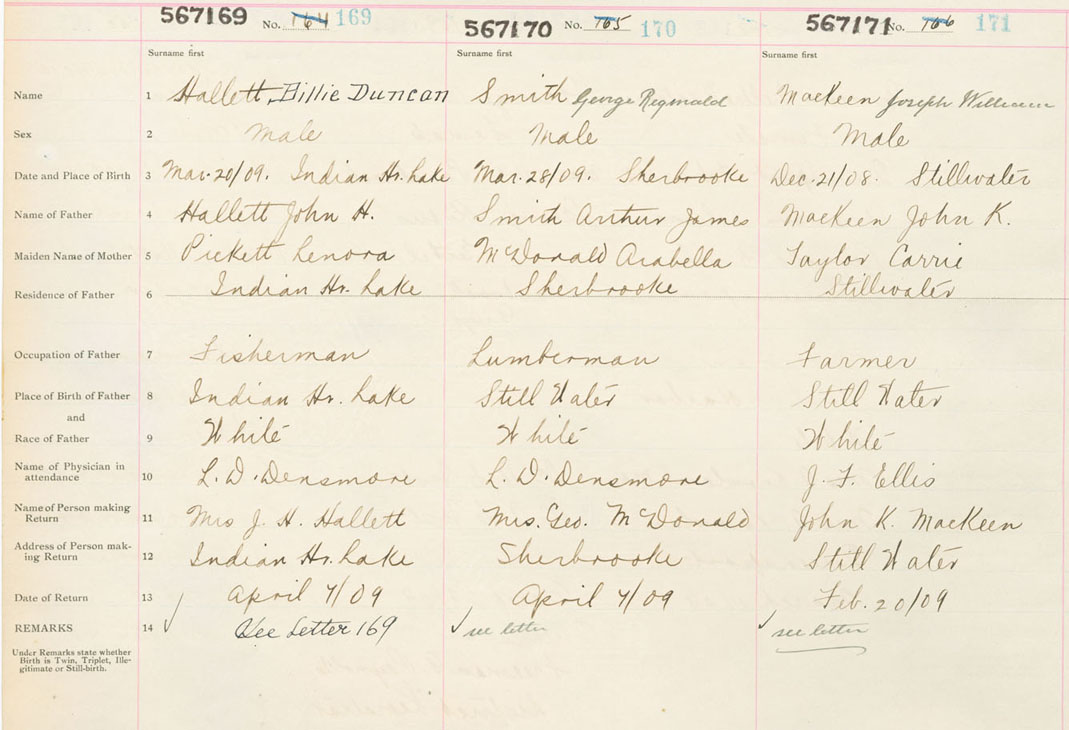 567169 No. 164 169 567170 No. 165 170 567171 No. 166 171
Surname first Surname first Surname first
Name 1 Hallett, Billie Duncan Smith George Reginald MacKeen Joseph William
Sex 2 Male Male Male
Date and Place of Birth 3 Mar. 20/09. Indian Hr. Lake Mar. 28/09. Sherbrooke Dec. 21/08. Stillwater
Name of Father 4 Hallett John H. Smith Arthur James MacKeen John K.
Maiden Name of Mother 5 Pickett Lenora McDonald Arabella Taylor Carrie
Residence of Father 6 Indian Hr. Lake Sherbrooke Stillwater
Occupation of Father 7 Fisherman Lumberman Farmer
Place of Birth of Father 8 Indian Hr. Lake Still Water Still Water
and
Race of Father 9 White White White
Name of Physician in
attendance 10 L. D. Densmore L. D. Densmore J. F. Ellis
Name of Person making
Return 11 Mrs J. H. Hallett Mrs. Geo. McDonald John K. MacKeen
Address of Person mak-
ing Return 12 Indian Hr. Lake Sherbrooke Still Water
Date of Return 13 April 7/09 April 7/09 Feb. 20/09
REMARKS 14 See Letter 169 see letter see letter
Under Remarks state whether
Birth is Twin, Triplet, Ille-
gitimate or Still-birth.